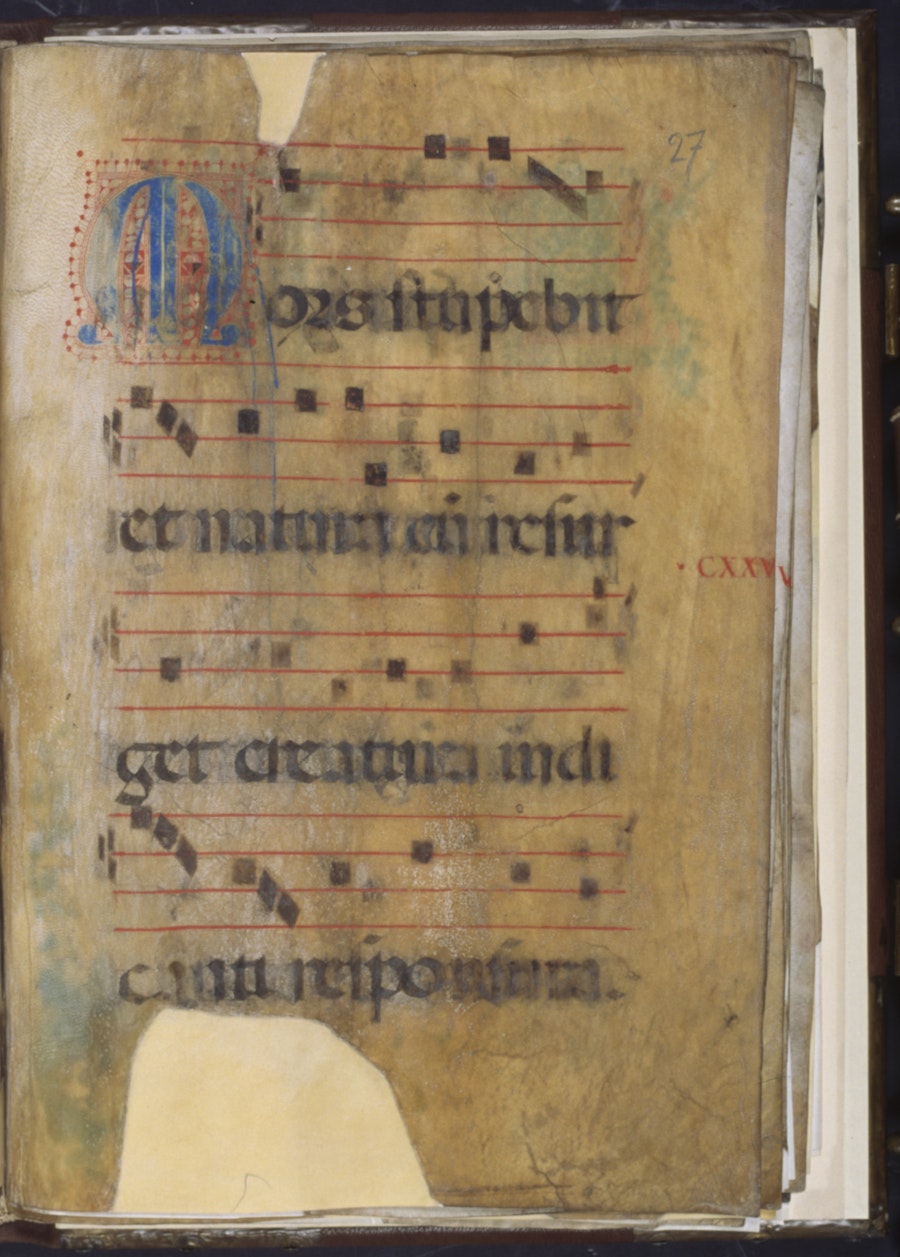 27
Mors stupebit
et natura cũ resur
· CXXV
get creatura iudi
canti responsura.